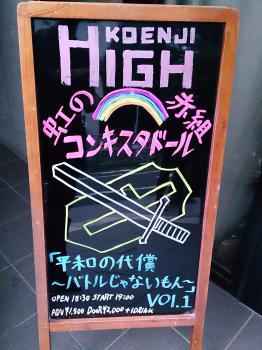 KOENJI
HIGH
虹の
赤組
コンキスタドール
「平和の代償
〜バトルじゃないもん〜」
VOl.1
OPEN 18:30 START 19:00
ADV ¥1,500 DOOR ¥2,000 + 1DRINK